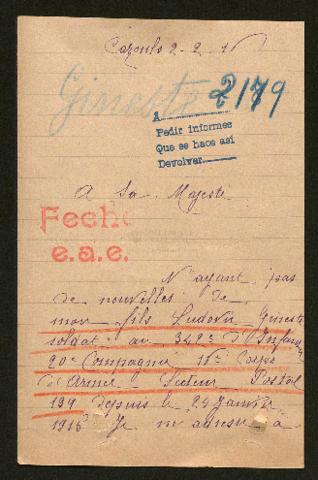 Cazouls 2-2-16
Gineste 2179
A
Pedir informes
Que se hace asi
Devolver
A Sa Majesté
Fecho
e.a.e.
N'ayant pas
de nouvelles de
mon fils Ludovic Gineste
soldat au 342e d'Infanterie
20e Compagnie 16e Corps
d'Armée Secteur Postal
199 depuis le 24 Janvier
1916 Je m'adresse à